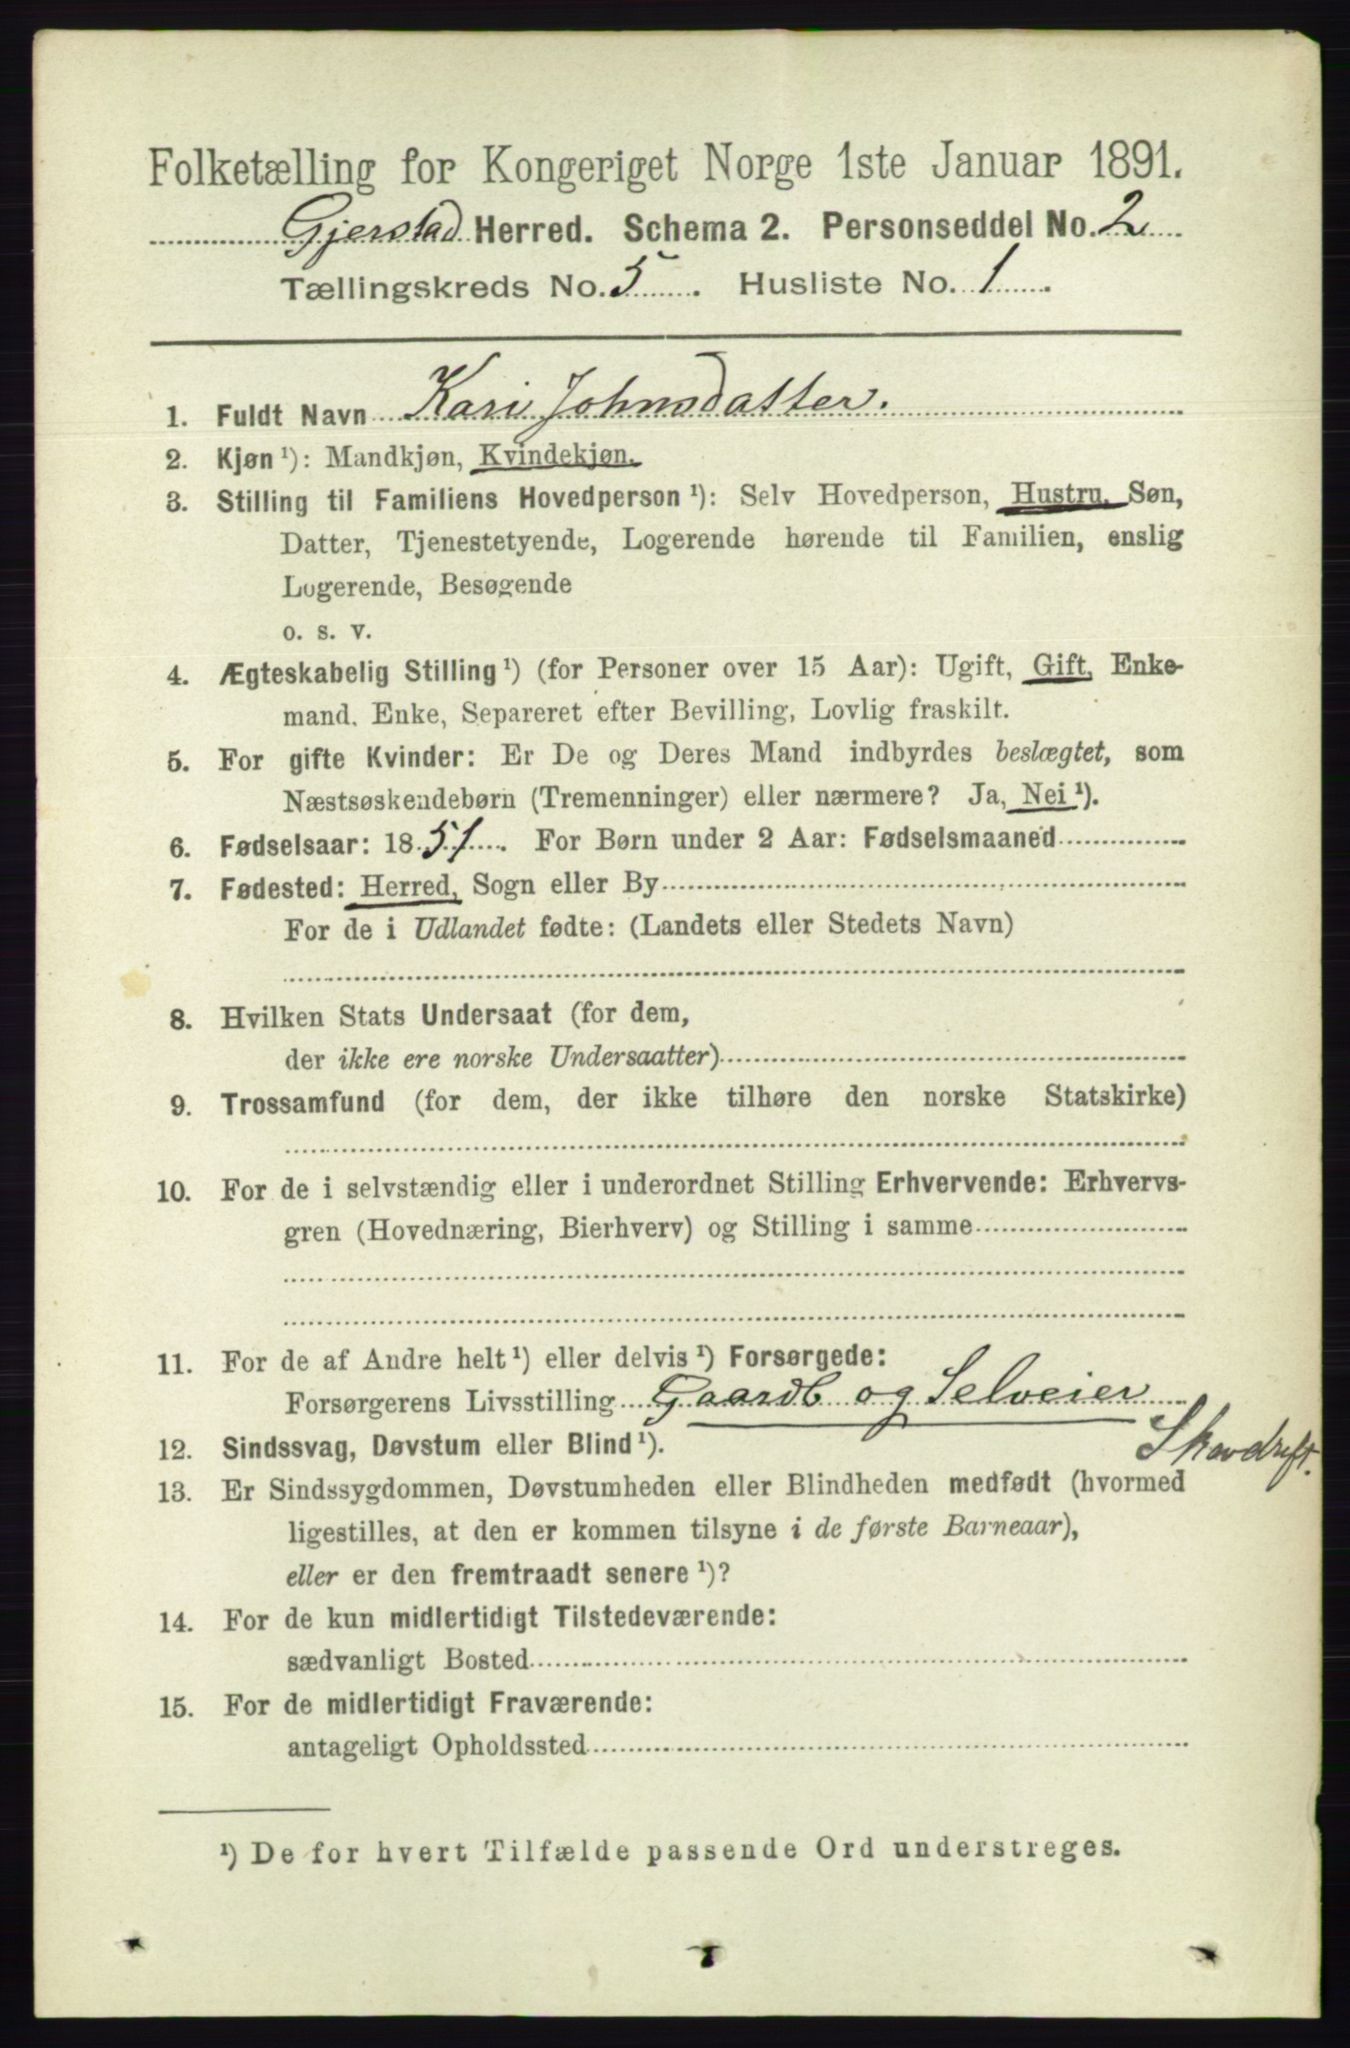 Folketælling for Kongeriget Norge 1ste Januar 1891.
Gjerstad Herred. Schema 2. Personseddel No. 2
Tællingskreds No. 5. Husliste No. 1.
1. Fuldt Navn Kari Johnsdatter.
2. Kjøn ¹): Mandkjøn, Kvindekjøn.
3. Stilling til Familiens Hovedperson ¹): Selv Hovedperson, Hustru, Søn,
Datter, Tjenestetyende, Logerende hørende til Familien, enslig
Logerende, Besøgende
o. s. v.
4. Ægteskabelig Stilling ¹) (for Personer over 15 Aar): Ugift, Gift, Enke-
mand, Enke, Separeret efter Bevilling, Lovlig fraskilt.
5. For gifte Kvinder: Er De og Deres Mand indbyrdes beslægtet, som
Næstsøskendebørn (Tremenninger) eller nærmere? Ja, Nei ¹).
6. Fødselsaar: 1851. For Børn under 2 Aar: Fødselsmaaned
7. Fødested: Herred, Sogn eller By
For de i Udlandet fødte: (Landets eller Stedets Navn)
8. Hvilken Stats Undersaat (for dem,
der ikke ere norske Undersaatter)
9. Trossamfund (for dem, der ikke tilhøre den norske Statskirke)
10. For de i selvstændig eller i underordnet Stilling Erhvervende: Erhvervs-
gren (Hovednæring, Bierhverv) og Stilling i samme
11. For de af Andre helt ¹) eller delvis ¹) Forsørgede:
Forsørgerens Livsstilling Gaardb og Selveier
Skovdrift.
12. Sindssvag, Døvstum eller Blind ¹).
13. Er Sindssygdommen, Døvstumheden eller Blindheden medfødt (hvormed
ligestilles, at den er kommen tilsyne i de første Barneaar),
eller er den fremtraadt senere ¹)?
14. For de kun midlertidigt Tilstedeværende:
sædvanligt Bosted
15. For de midlertidigt Fraværende:
antageligt Opholdssted
¹) De for hvert Tilfælde passende Ord understreges.